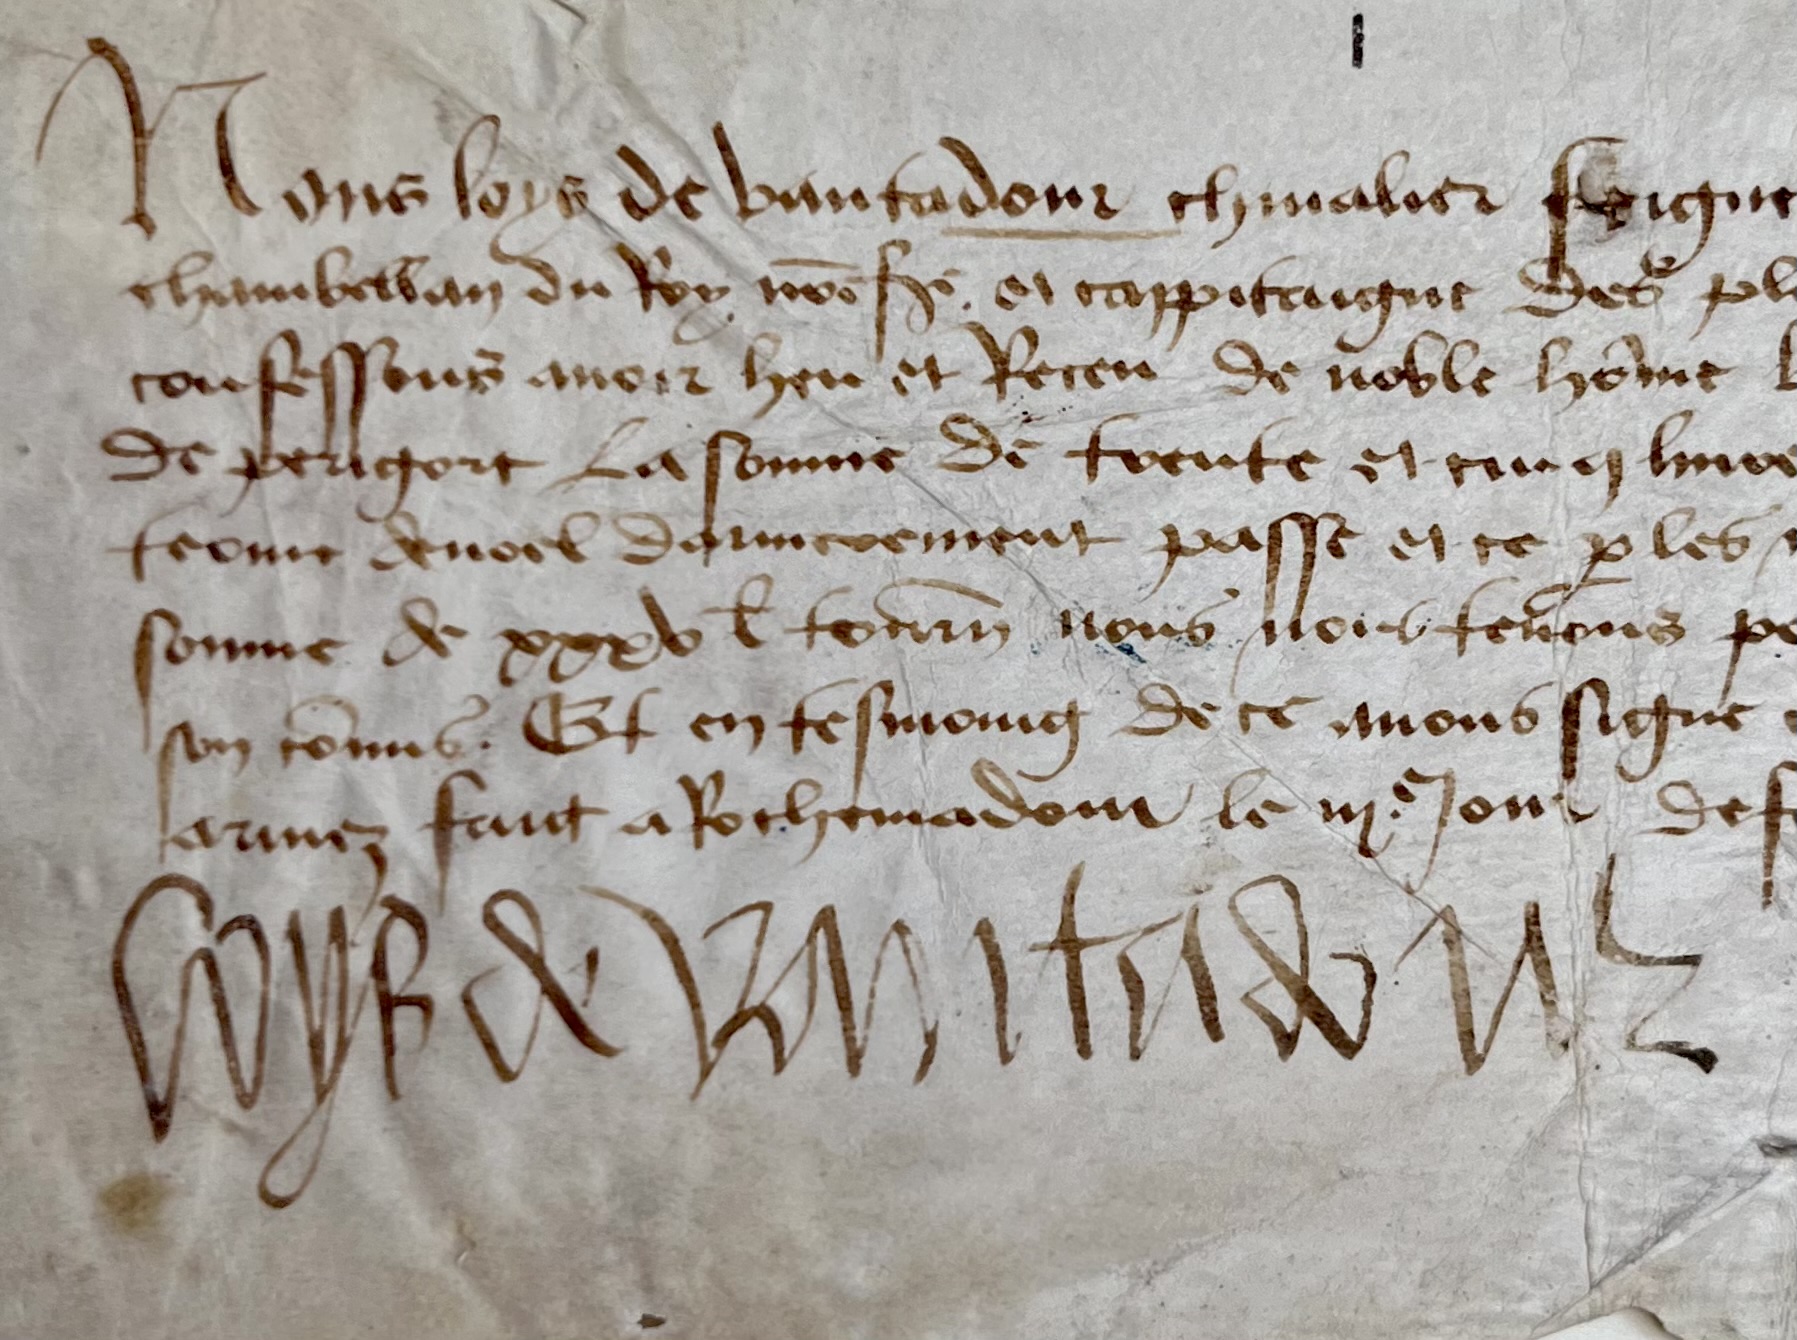 Nous loys de vantadour chīvalier seigne
chambellan du Roy nr̄e sr̄e. et cappitaigne des pl
confessons avoir heu et Receu de noble hōme
de perigort La somme de trente et cinq livre
terme de noel darnierement passe et ce p les
somme de xxxv l tourn nous nous tenons
son cōmis. Et en tesmoing de ce avons signe
armez faict a Rochemadour le iiie Jour de f
loys de vantadour